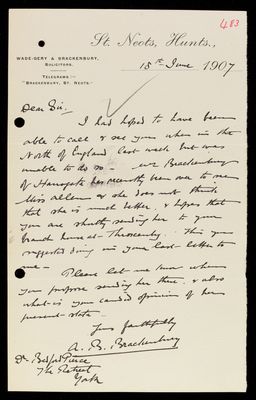 483
St. Neots, Hunts.,
WADE-GERY & BRACKENBURY,
SOLICITORS.
TELEGRAMS:-
"BRACKENBURY, ST. NEOTS."
15th June 1907
Dear Sir,
I had hoped to have been
able to call & see you when in the
North of England last week but was
unable to do so. Brackenbury
of Harrogate has recently been over to see
Miss Allen & she does not think
that she is much better & hopes that
you are shortly sending her to your
branch house at This you
suggested doing in your last letter to
me -
Please let me know when
you purpose sending her there, & also
what is your candid opinion of her
present state.
Yours faithfully
A. B. Brackenbury
Dr. Bedford Pierce
The Retreat
York